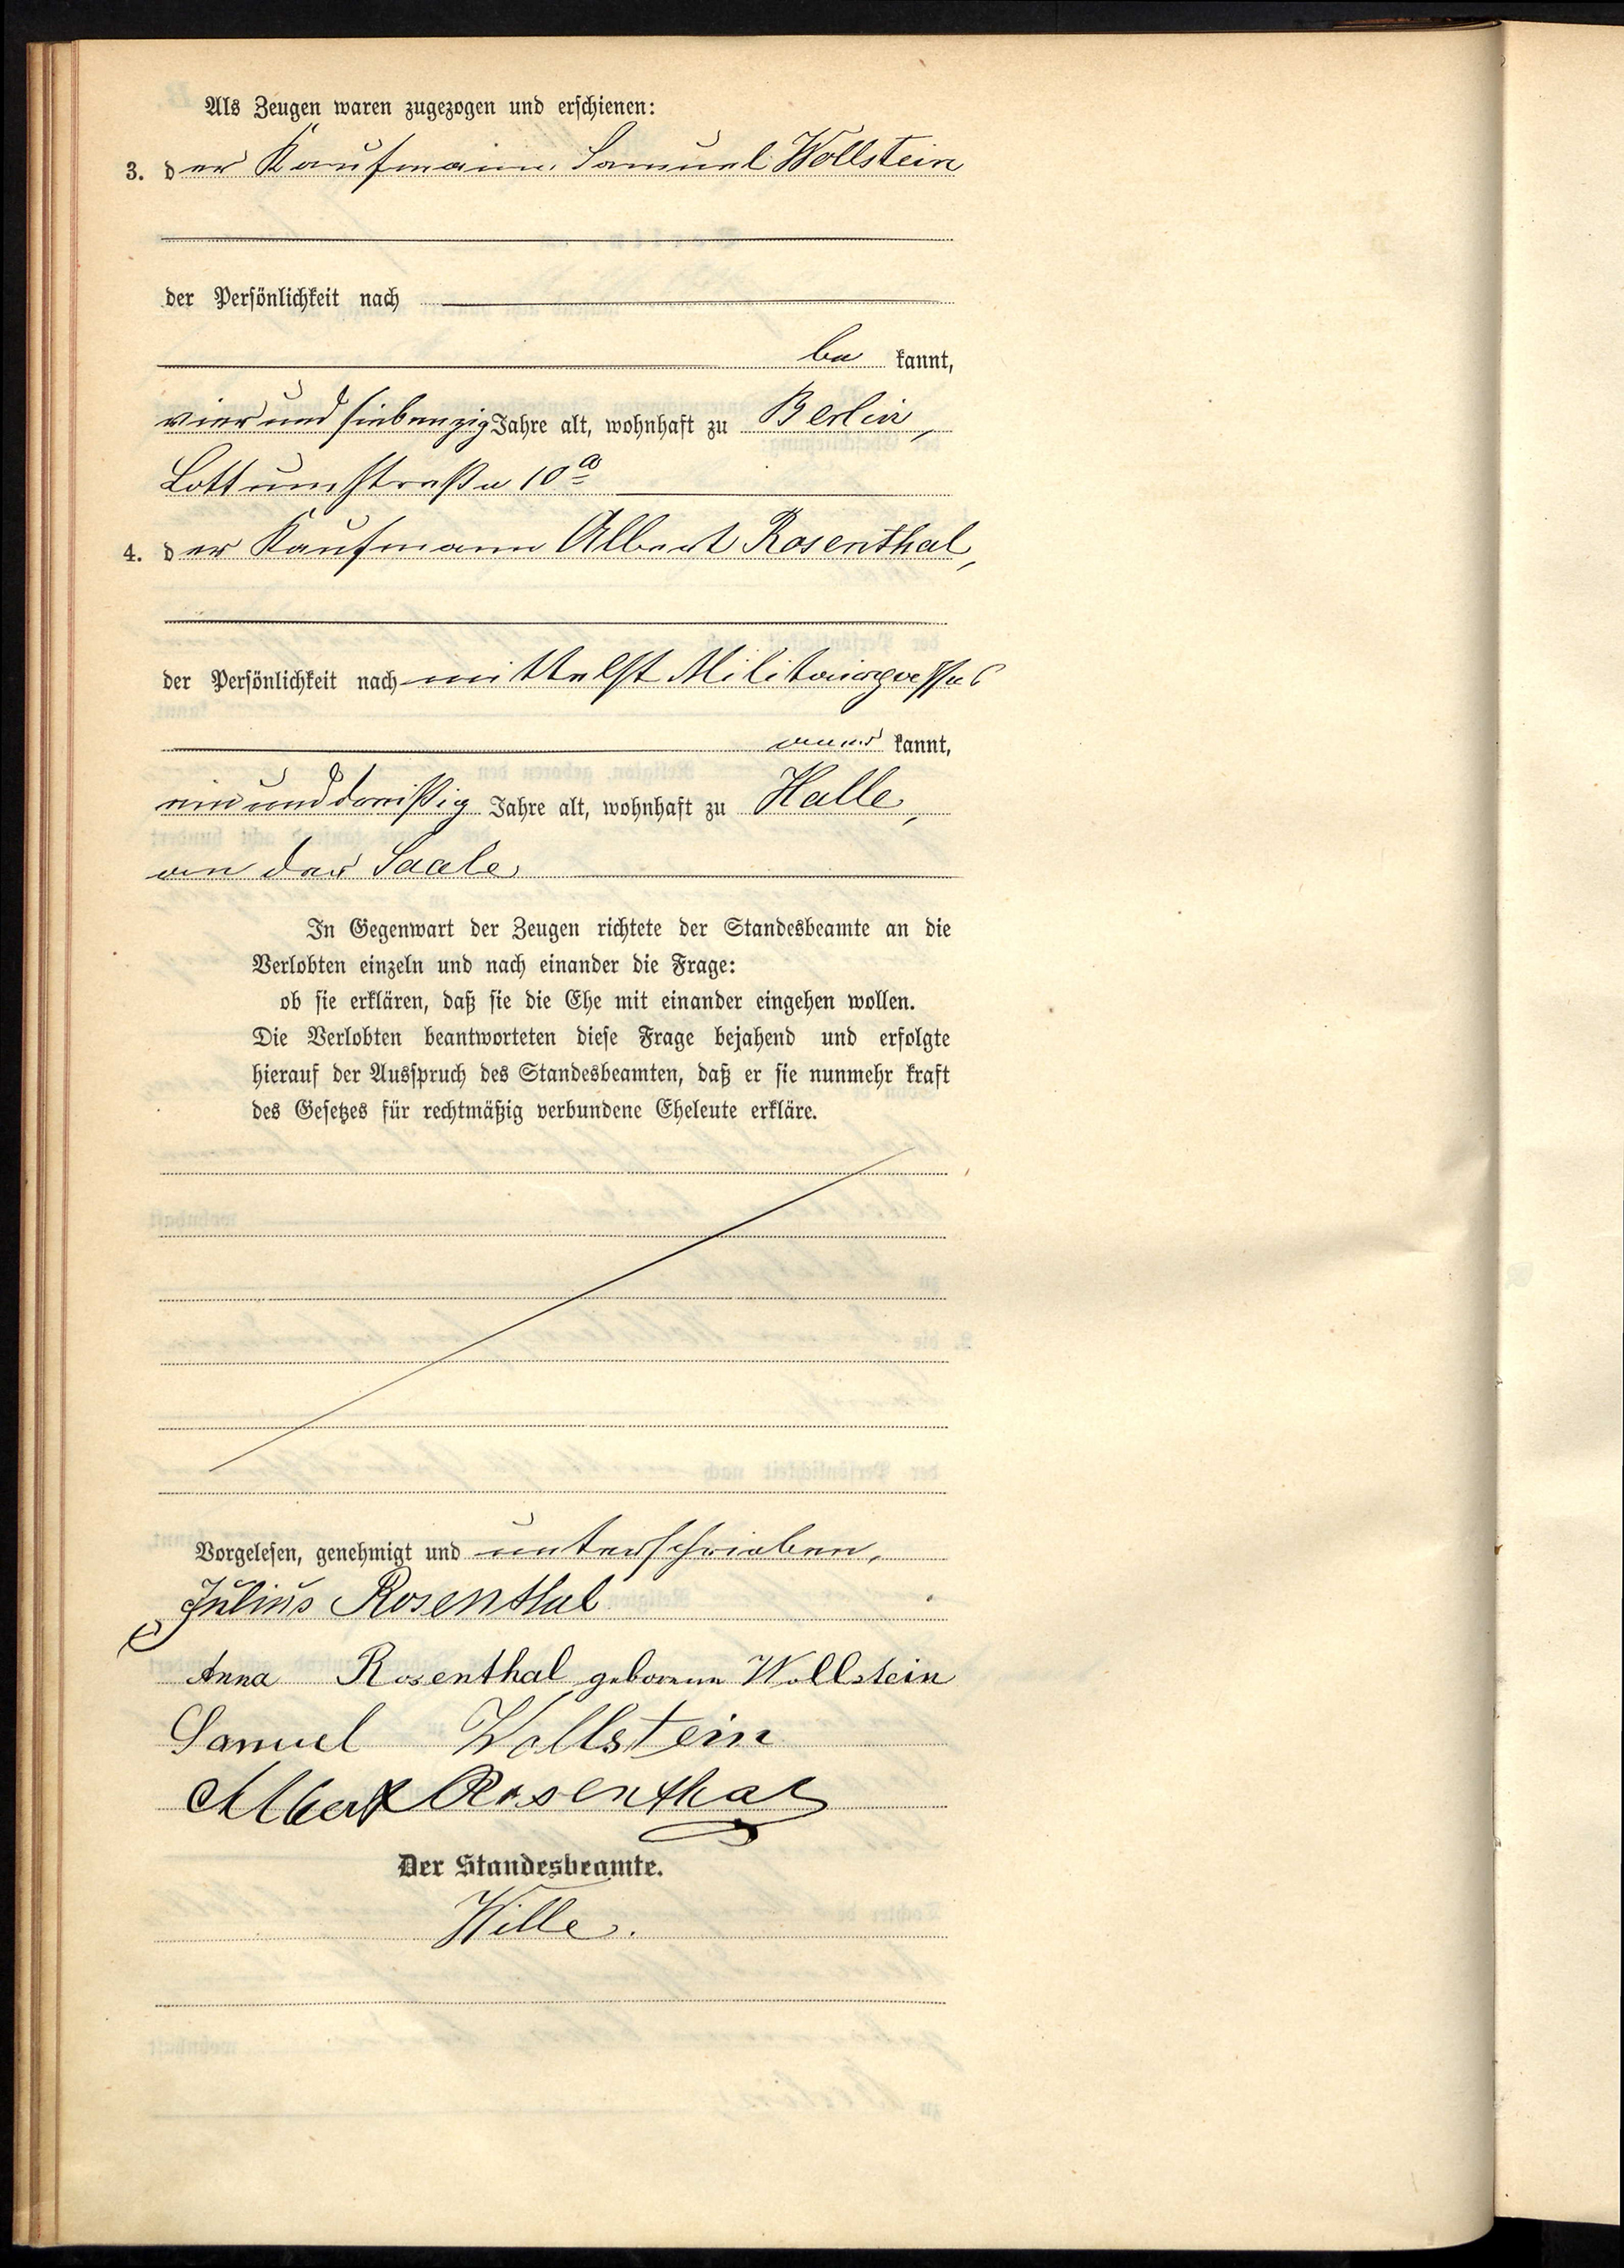 Als Zeugen waren zugezogen und erschienen:
3. der Kaufmann Samuel Wollstein
der Persönlichkeit nach
be kannt,
vier und siebenzig Jahre alt, wohnhaft zu Berlin,
Lottumstraße 10a
4. der Kaufmann Albert Rosenthal,
der Persönlichkeit nach mittelst Militairpasses
aner kannt,
ein und dreißig Jahre alt, wohnhaft zu Halle,
an der Saale
In Gegenwart der Zeugen richtete der Standesbeamte an die
Verlobten einzeln und nach einander die Frage:
ob sie erklären, daß sie die Ehe mit einander eingehen wollen.
Die Verlobten beantworteten diese Frage bejahend und erfolgte
hierauf der Ausspruch des Standesbeamten, daß er sie nunmehr kraft
des Gesetzes für rechtmäßig verbundene Eheleute erkläre.
Vorgelesen, genehmigt und unterschrieben.
Julius Rosenthal
Anna Rosenthal geborene Wollstein
Samuel Wollstein
Albert Rosenthal
Der Standesbeamte.
Wille.